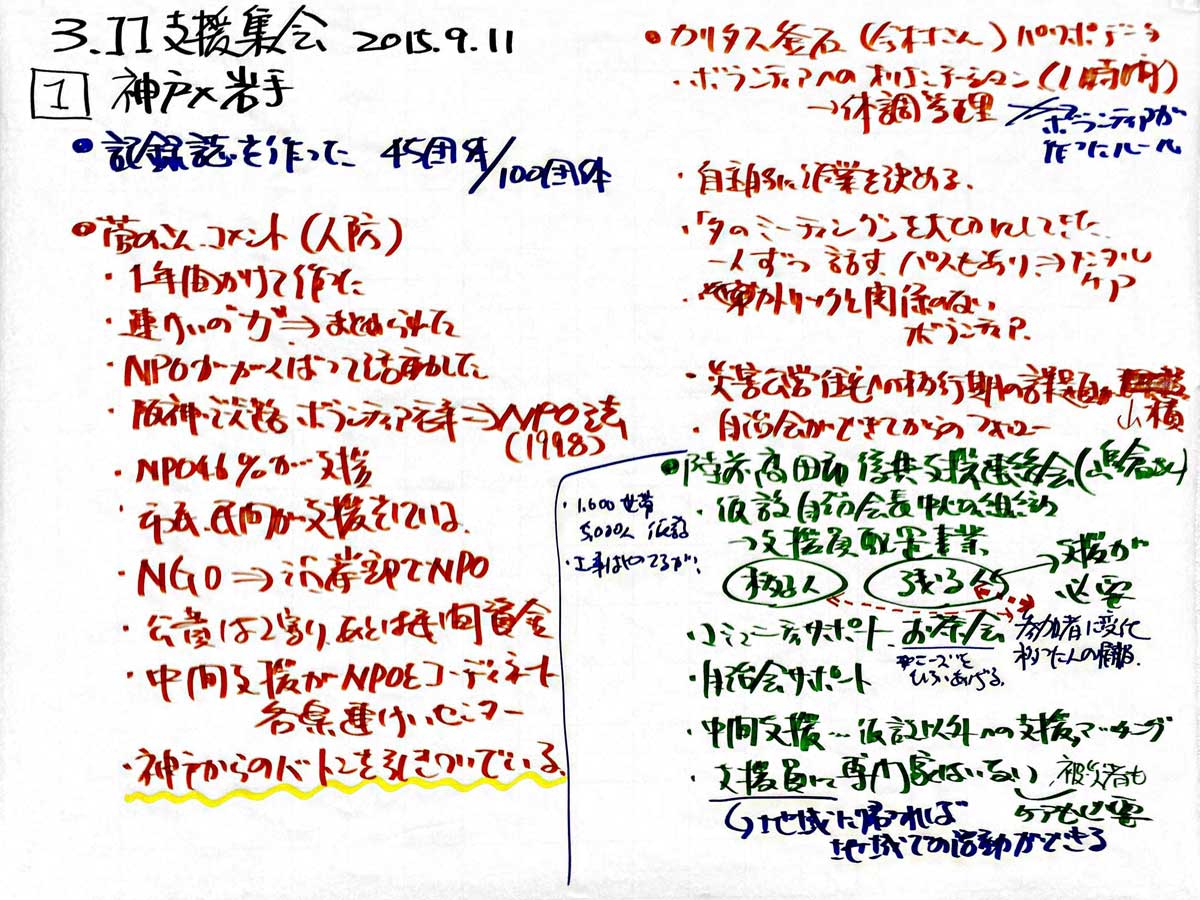 3.11 支援集会 2015.9.11
1 神戸×岩手
・記録誌を作った 45団体/100団体
・菅のさん コメント(人防)
・1年間かけて作った
・連けいの"力"⇒まとめられた
・NPOががんばって活動した
・阪神・淡路 ボランティア元年⇒NPO法
(1998)
・NPO46%が支援
・市民、民間が支援をしている
・NGO⇒
でNPO
・公費は2割り、あとは民間資金
・中間支援がNPOをコーディネート
各県連けいセンター
・神戸からのバトンを引きついでいる
・カリタス釜石(今村さん)パワポデータ
・ボランティアへのオリエンテーション(1時間)
→体調管理
ボランティアが
作ったルール
・自主的に作業を決める。
・「夕のミーティング」を大切にしてきた
一人ずつ話す パスもあり⇒
ケア
・
カトリックと関係のない
ボランティア。
・災害公営住宅への移行期の課題
山積
・自治会ができてからのフォロー
・陸前高田市
支援連絡会
・仮設自治会長中心の組織
→支援員配置事業
移る人 残る
→支援が
必要
・コミュニティサポート お茶会
ニーズを
ひろいあげる。
参加者に変化
移った人の情報
・自治会サポート
・中間支援…仮設以外への支援、マッチング
・支援員に専門家はいない、被災者も
ケアも必要
↳地域に帰れば
地域での活動ができる
・1.600世帯
5,000人 仮設
・